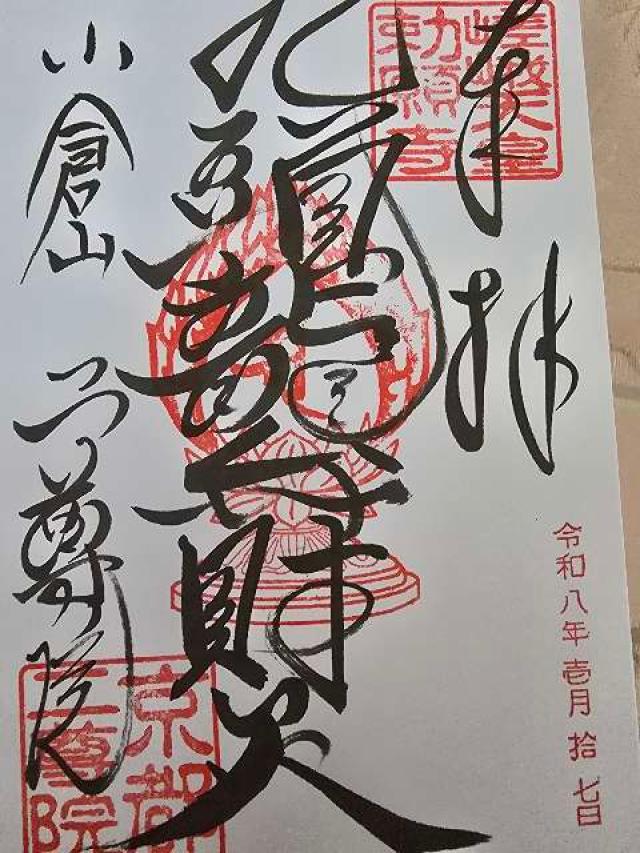 奉拝
嵯峨天皇
勅願寺
令和八年壱月拾七日
九頭龍弁財天
小倉山 二尊院
京都
二尊院